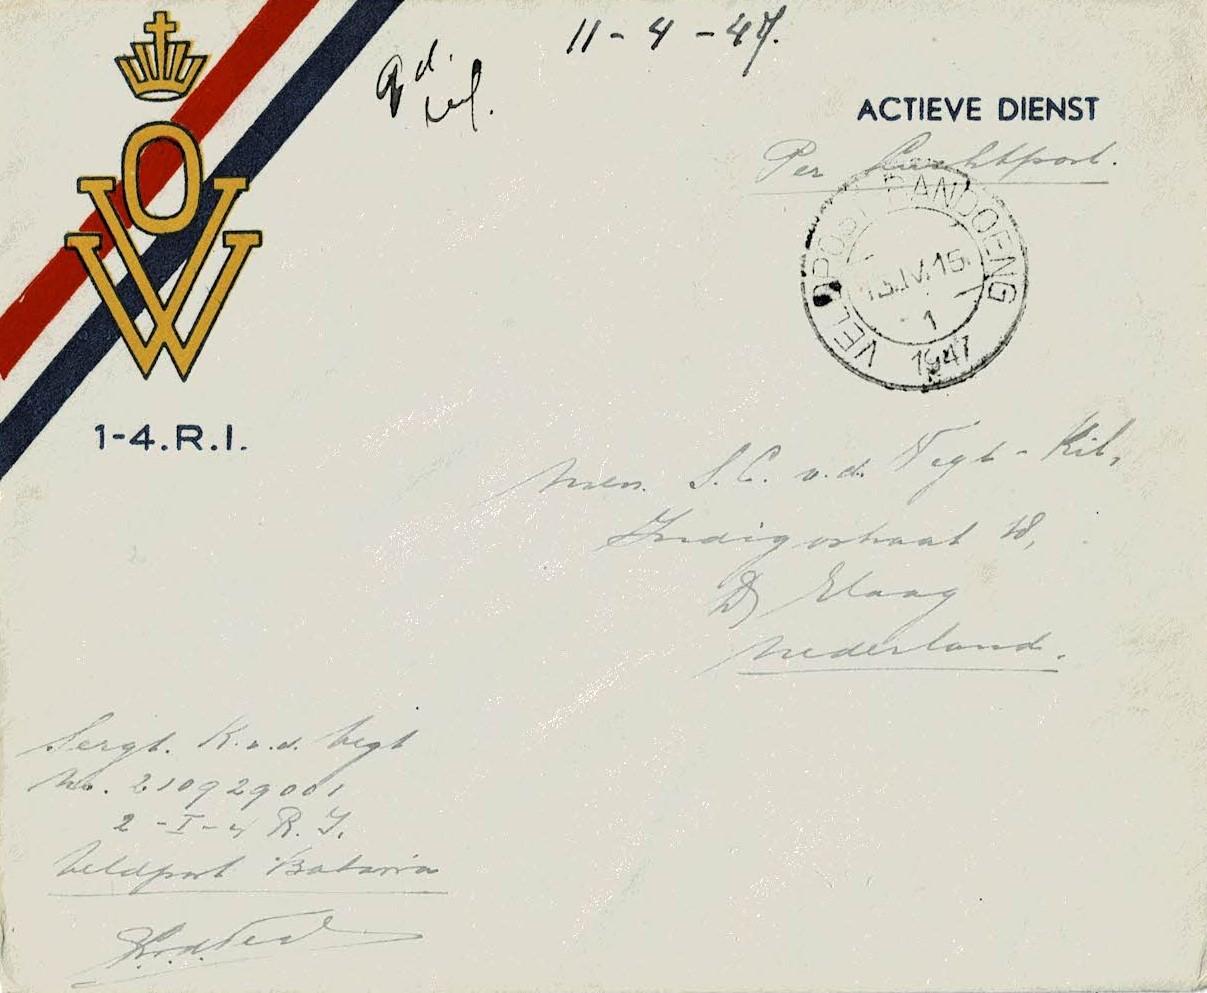 11-4-47.
ACTIEVE DIENST
Per Luchtpost.
VELDPOST BANDOENG
IV.15
1
1947
OW
1-4.R.I.
Mevr. S.C. v.d. Vegt-Kil,
Indigostraat
D Haag
Nederland.
Sergt. K. v.d. Vegt
No. 210929001
2-I-4 R.I.
Veldpost Batavia